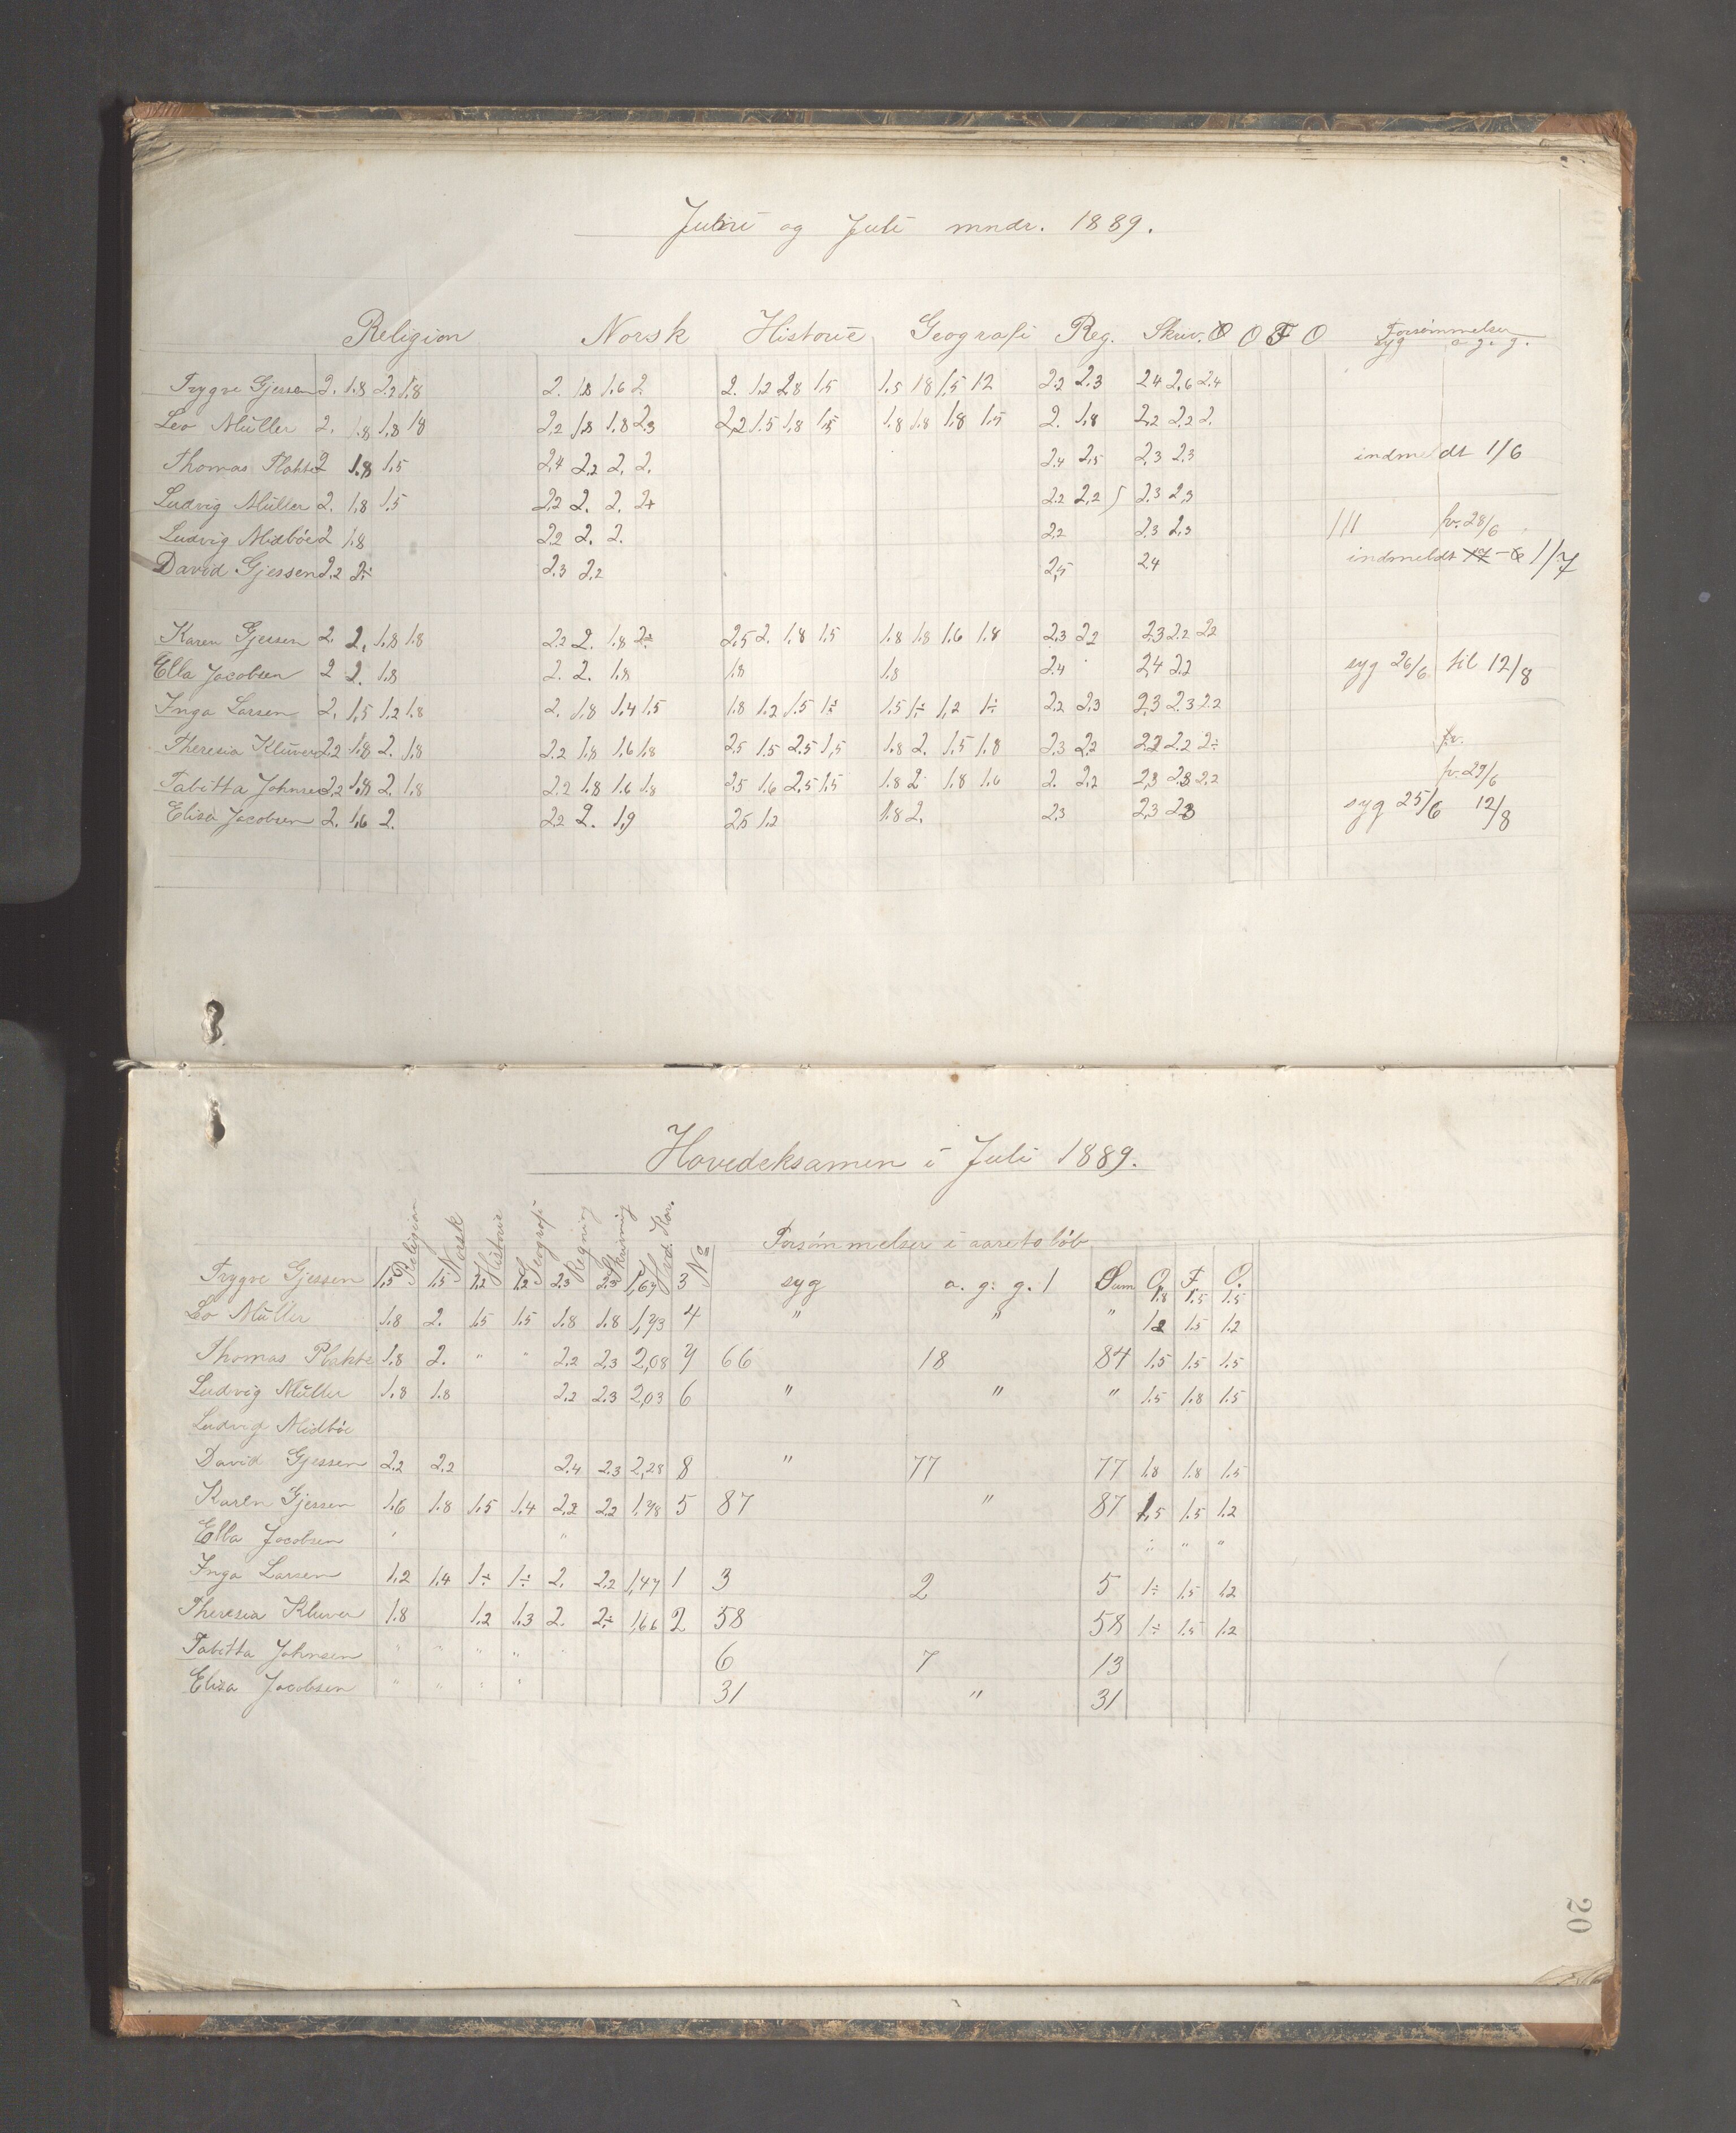 Juni og Juli mndr. 1889.
Religion Norsk Historie Geografi Reg. Skriv. O O F O Forsømmelser
syg a. g. g.
Trygve Gjessen 2. 1.8 2.2 1.8 2. 1.8 1.6 2. 2. 1.2 2.8 1.5 1.5 1.8 1.5 1.2 2.2 2.3 2.4 2.6 2.4
Leo Müller 2. 1.8 1.8 1.8 2.2 1.8 1.8 2.3 2.2 1.5 1.8 1.5 1.8 1.8 1.8 1.5 2. 1.8 2.2 2.2 2.
Thomas Plahte 2 1.8 1.5 2.4 2.2 2. 2. 2.4 2.5 2.3 2.3 indmeldt 1/6
Ludvig Müller 2. 1.8 1.5 2.2 2. 2. 2+ 2.2 2.2 2.3 2.3
Ludvig Midböe 2 1.8 2.2 2. 2. 2.2 2.3 2.3 /// fr. 28/6
David Gjessen 2.2 2÷ 2.3 2.2 2.5 2.4 indmeldt 1/7
Karen Gjessen 2. 2. 1.8 1.8 2.2 2. 1.8 2÷ 2.5 2. 1.8 1.5 1.8 1.8 1.6 1.8 2.3 2.2 2.3 2.2 2.2
Ella Jacobsen 2 2. 1.8 2. 2. 1.8 1.8 1.8 2.4 2.4 2.2 syg 26/6 til 12/8
Inga Larsen 2. 1.5 1.2 1.8 2. 1.8 1.4 1.5 1.8 1.2 1.5 1÷ 1.5 1÷ 1.2 1÷ 2.2 2.3 2.3 2.3 2.2
Theresia Klüver 2.2 1.8 2. 1.8 2.2 1.8 1.6 1.8 2.5 1.5 2.5 1.5 1.8 2. 1.5 1.8 2.3 2.2 2.2 2.2 2÷ fr.
Tabitta Johnsen 2.2 1.8 2. 1.8 2.2 1.8 1.6 1.8 2.5 1.6 2.5 1.5 1.8 2 1.8 1.6 2. 2.2 2.3 2.3 2.2 fr. 29/6
Elisa Jacobsen 2. 1.6 2. 2.2 2. 1.9 2.5 1.2 1.8 2. 2.3 2.3 2.3 syg 25/6 12/8
Hovedeksamen i Juli 1889.
Religion Norsk Historie Geografi Regning Skrivning Hvd. Kar. No Forsömmelser i aarets löb
Trygve Gjessen 1.5 1.5 1.2 1.2 2.3 2.3 1,67 3 syg a. g. g. 1 Sum O. F. O.
1.8 1.5 1.5
Leo Müller 1.8 2. 1.5 1.5 1.8 1.8 1,73 4 " " " 1.2 1.5 1.2
Thomas Plahte 1.8 2. " " 2.2 2.3 2,08 7 66 18 84 1.5 1.5 1.5
Ludvig Müller 1.8 1.8 2.2 2.3 2,03 6 " " " 1.5 1.8 1.5
Ludvig Midböe
David Gjessen 2.2 2.2 2.4 2.3 2,28 8 " 77 77 1.8 1.8 1.5
Karen Gjessen 1.6 1.8 1.5 1.4 2.2 2.2 1,78 5 87 " 87 1.5 1.5 1.2
Ella Jacobsen " " " " "
Inga Larsen 1.2 1.4 1÷ 1÷ 2. 2.2 1,47 1 3 2 5 1÷ 1.5 1.2
Theresia Kluver 1.8 1.2 1.3 2. 2÷ 1,66 2 58 58 1÷ 1.5 1.2
Tabitta Johnsen " " " " 6 7 13
Elisa Jacobsen " " " " 31 " 31
20